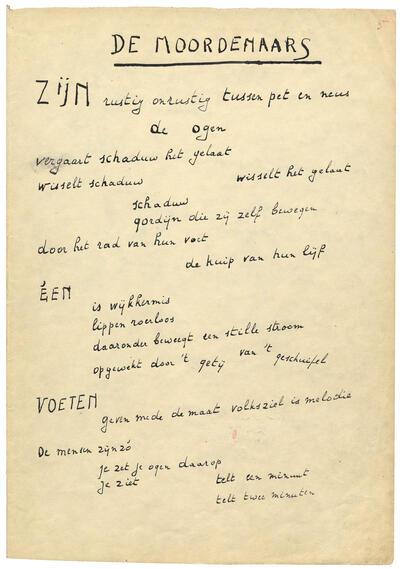 DE MOORDENAARS
ZIJN rustig onrustig tussen pet en neus
de ogen
vergaart schaduw het gelaat
wisselt schaduw wisselt het gelaat
schaduw
gordijn die zij zelf bewegen
door het rad van hun voet
de kuip van hun lijf
ÉEN is wijkkermis
lippen roerloos
daaronder beweegt een stille stroom
opgewekt door 't getij van 't geschuifel
VOETEN
geven mede de maat volksziel is melodie
De mensen zijnzó
je zet je ogen daarop
je ziet telt een minuut
telt twee minuten